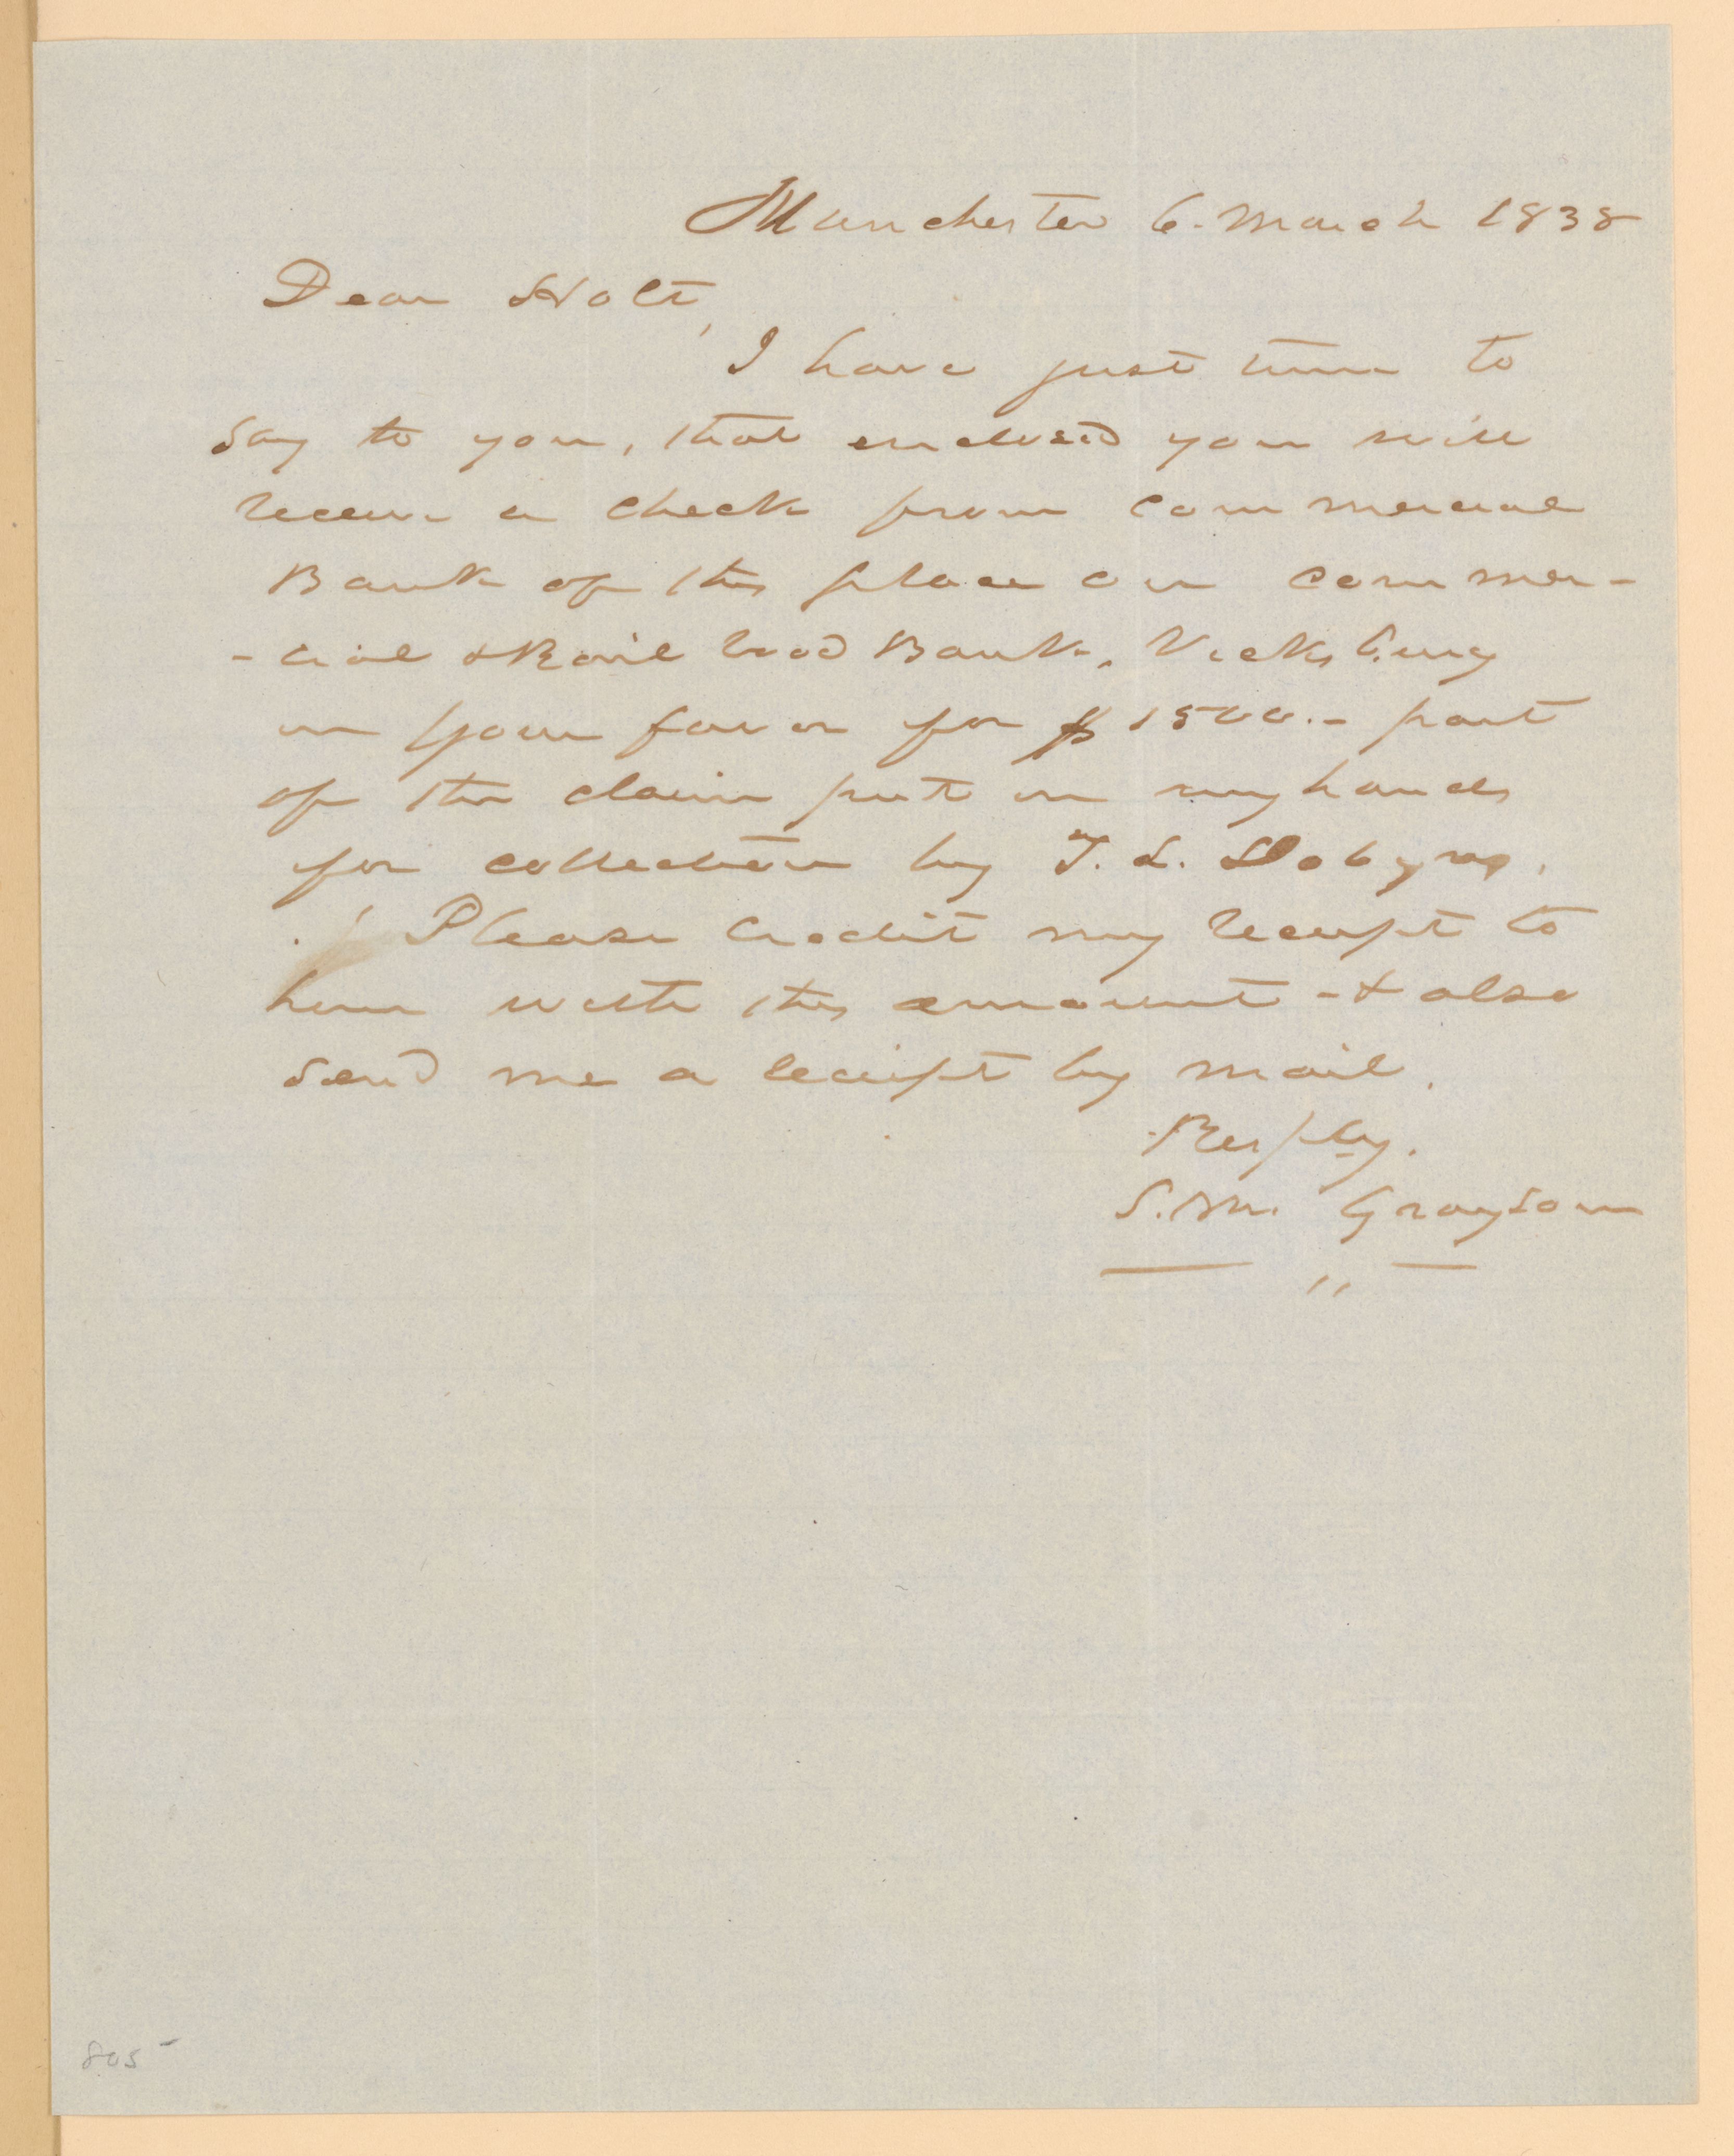 Manchester 6. March 1838
Dear Holt,
I have just time to
say to you, that enclosed you will
receive a check from Commercial
Bank of this place on Commer-
-cial & Rail Road Bank, Vicksburg
in your favor for $1500.- part
of the claim put in my hands
for collection by T. L. Dobyns.
Please credit my receipt to
him with this amount - & also
send me a receipt by mail.
Resply.
S. M. Grayson
805